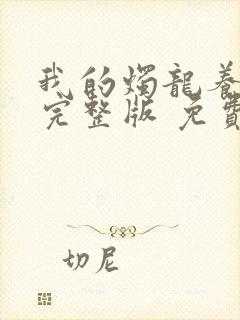 我的燭龍養
完整版 免費
切尼